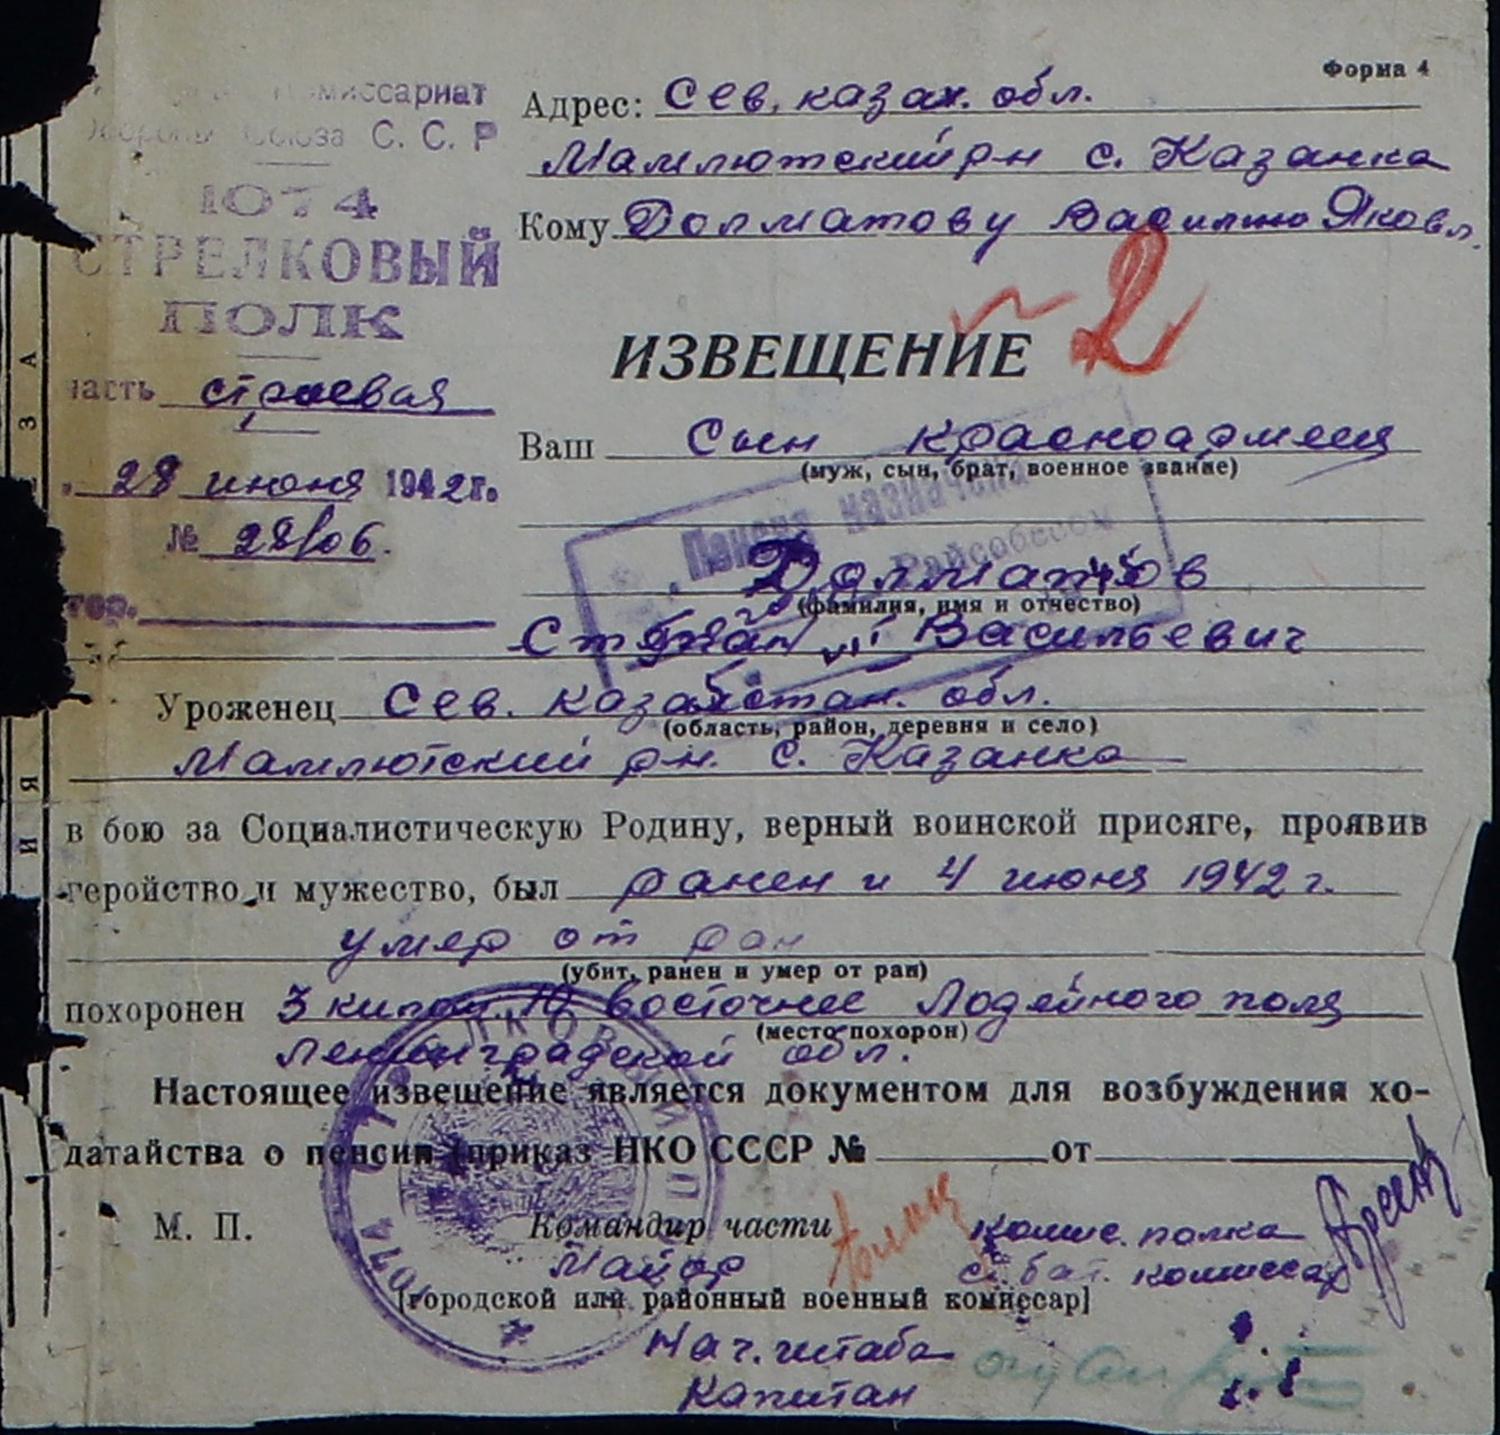 Форма 4
Комиссариат
Союза С. С. Р
1074
СТРЕЛКОВЫЙ
ПОЛК
часть строевая
28 июня 1942 г.
№ 28/06.
Адрес: Сев. казах. обл.
Мамлютский р-н с. Казанка
Кому Долматову Василию Яковл.
ИЗВЕЩЕНИЕ
2
Ваш Сын красноармеец
(муж, сын, брат, военное звание)
Пенсия назначена
Райсобесом
Долматов
(фамилия, имя и отчество)
Степан Васильевич
Уроженец Сев. казахстан. обл.
(область, район, деревня и село)
Мамлютский р-н. с. Казанка
в бою за Социалистическую Родину, верный воинской присяге, проявив
геройство и мужество, был ранен и 4 июня 1942 г.
умер от ран
(убит, ранен и умер от ран)
похоронен 3 килом. Ю восточнее Лодейного поля
(место похорон)
Ленинградской обл.
Настоящее извещение является документом для возбуждения хо-
датайства о пенсии (приказ НКО СССР № от
М. П. Командир части комис. полка
Майор ст. бат. комиссар
[городской или районный военный комиссар]
Нач. штаба
Капитан
ИЯ
ЗА